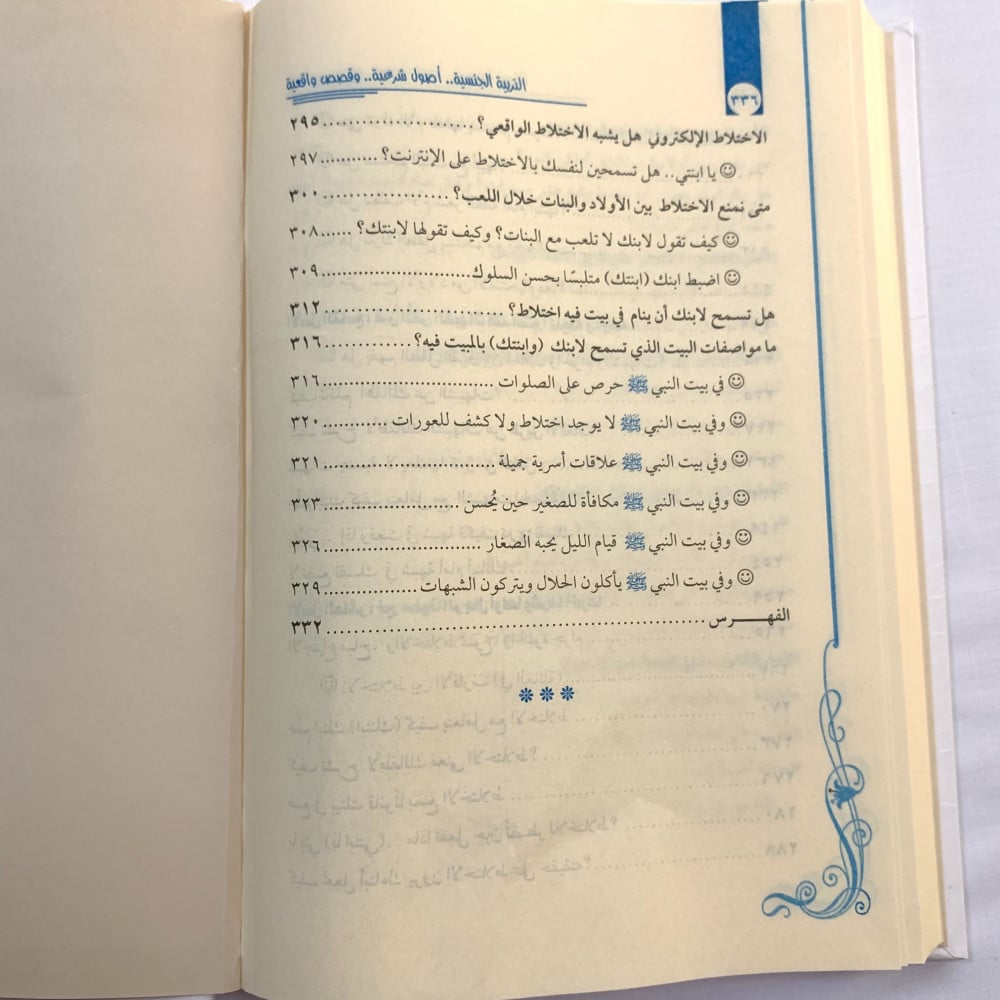 التربية الجنسية.. أصول شرعية.. وقصص واقعية
٣٣٦
الاختلاط الإلكتروني هل يشبه الاختلاط الواقعي؟ ....................... ٢٩٥
☺ يا ابنتي.. هل تسمحين لنفسك بالاختلاط على الإنترنت؟ ........... ٢٩٧
متى نمنع الاختلاط بين الأولاد والبنات خلال اللعب؟ ................... ٣٠٠
☺ كيف تقول لابنك لا تلعب مع البنات؟ وكيف تقولها لابنتك؟ ...... ٣٠٨
☺ اضبط ابنك (ابنتك) متلبسًا بحسن السلوك........................... ٣٠٩
هل تسمح لابنك أن ينام في بيت فيه اختلاط؟ ........................... ٣١٢
ما مواصفات البيت الذي تسمح لابنك (وابنتك) بالمبيت فيه؟ ............. ٣١٦
☺ في بيت النبي ﷺ حرص على الصلوات .............................. ٣١٦
☺ وفي بيت النبي ﷺ لا يوجد اختلاط ولا كشف للعورات ............ ٣٢٠
☺ وفي بيت النبي ﷺ علاقات أسرية جميلة .............................. ٣٢١
☺ وفي بيت النبي ﷺ مكافأة للصغير حين يُحسن ........................ ٣٢٣
☺ وفي بيت النبي ﷺ قيام الليل يحبه الصغار ............................ ٣٢٦
☺ وفي بيت النبي ﷺ يأكلون الحلال ويتركون الشبهات................. ٣٢٩
الفهـــــرس ................................................................ ٣٣٢